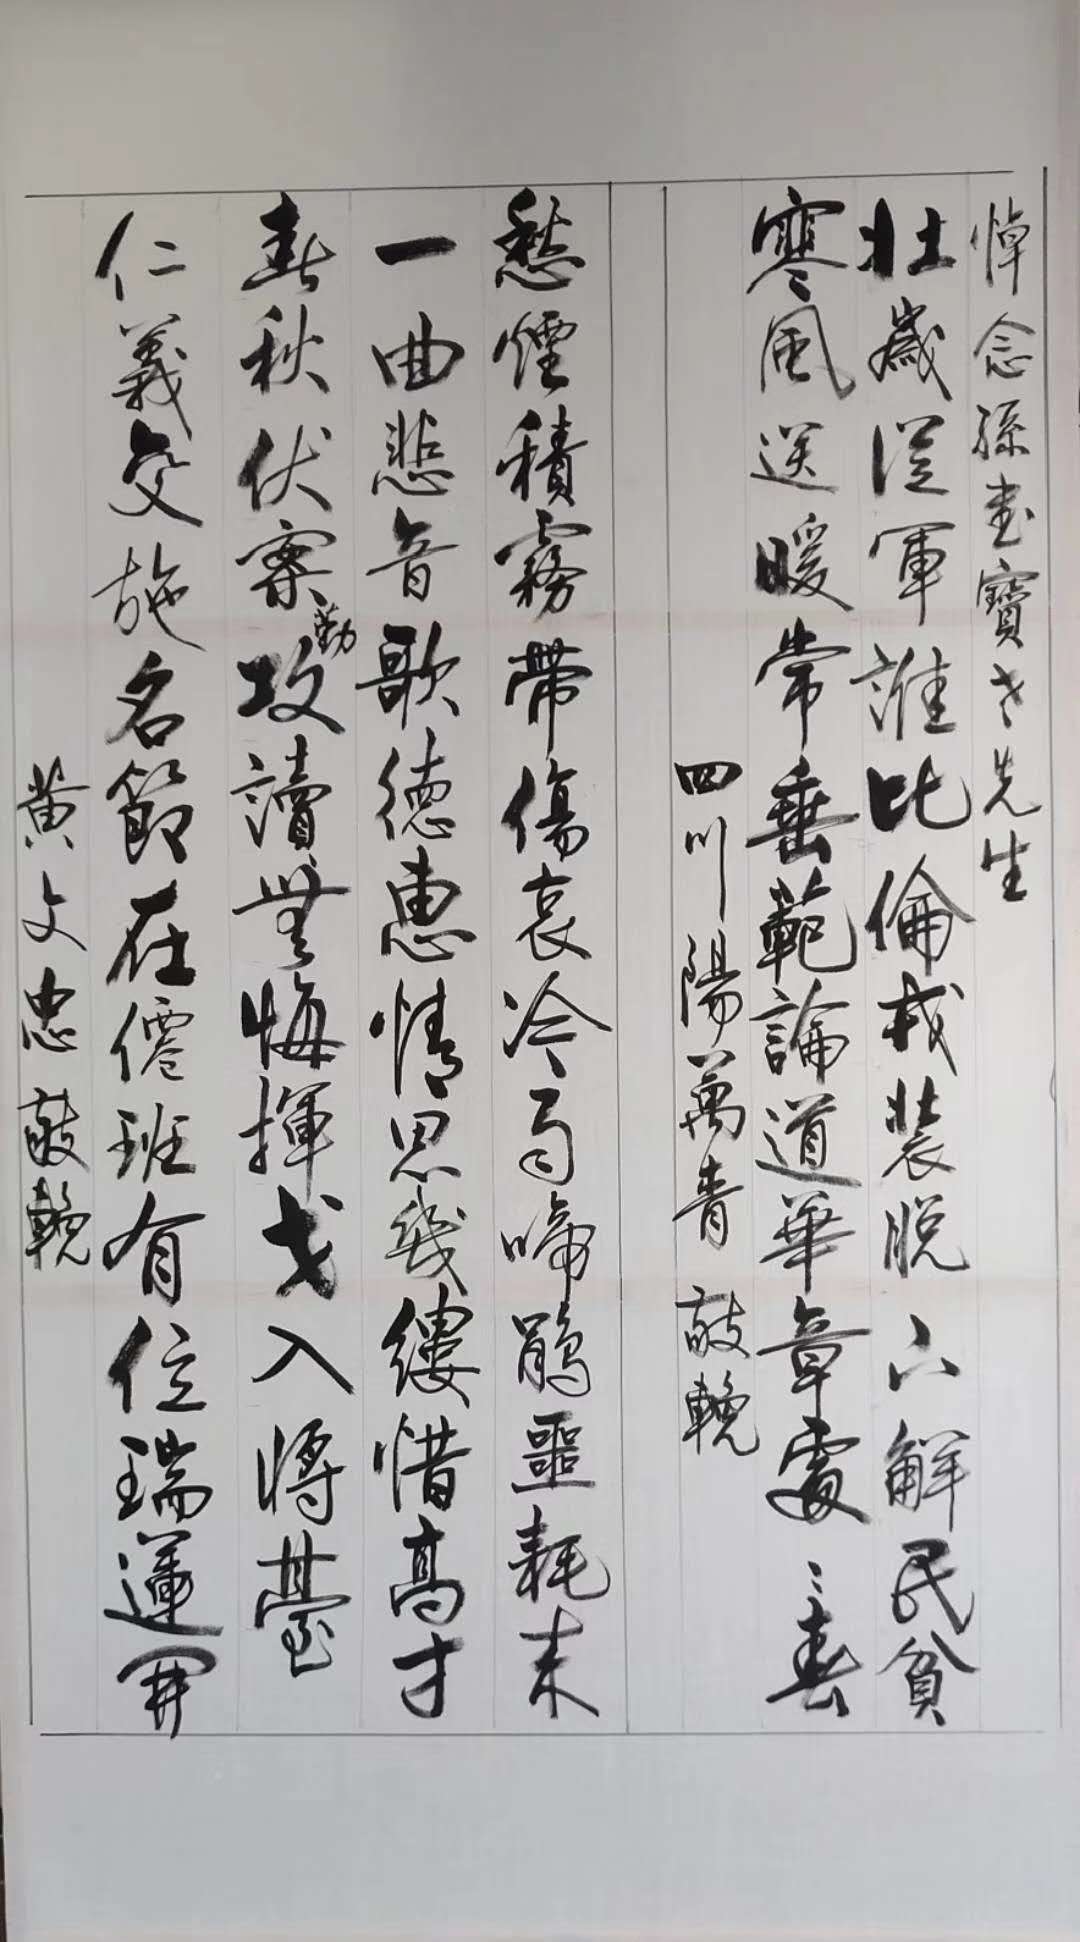 悼念孫書寶老先生
壯歲從軍誰比倫戎裝脫下解民貧
寒風送暖常垂範論道華章處處春
四川陽萬青敬輓
愁煙積霧帶傷哀冷雨啼鵑噩耗來
一曲悲音歌德惠情思幾縷惜高才
春秋伏案勤攻讀無悔揮戈入將臺
仁義廣施名節在僊班有位瑞蓮開
黄文忠敬輓